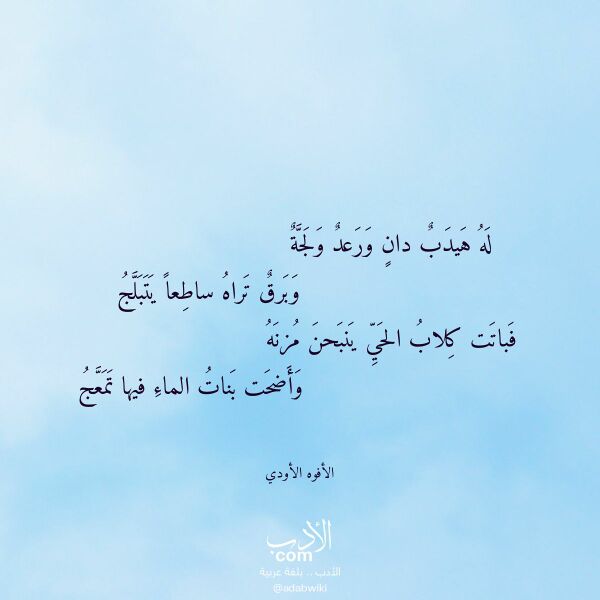 لَهُ هَيدَبٌ دانٍ وَرَعدٌ وَلَجَّةٌ
وَبَرقٌ تَراهُ ساطِعاً يَتَبَلَّجُ
فَباتَت كِلابُ الحَيِّ يَنبَحنَ مُزنَهُ
وَأَضحَت بَناتُ الماءِ فيها تَمَعَّجُ
الأفوه الأودي
الأدب
com
الأدب .. بلغة عربية
@adabwiki